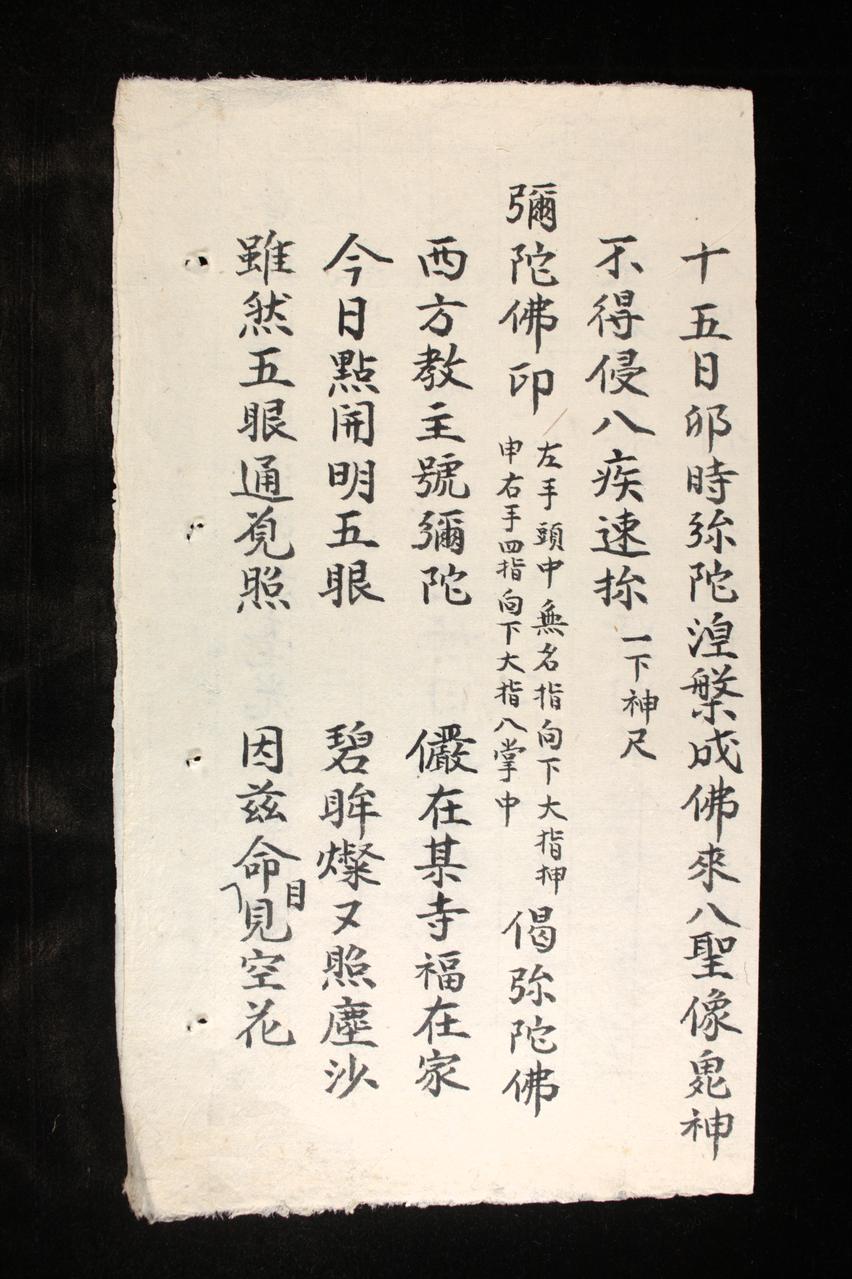 十五日卯時弥陀湼槃成佛來八聖像鬼神
不得侵八疾速捺 一下神尺
彌陀佛印 左手頭中無名指向下大指押 申右手四指向下大指八掌中 偈弥陀佛
西方教主號彌陀 儼在某寺福在家
今日點開明五眼 碧眸燦又照塵沙
雖然五眼通覓照 因兹命目見空花